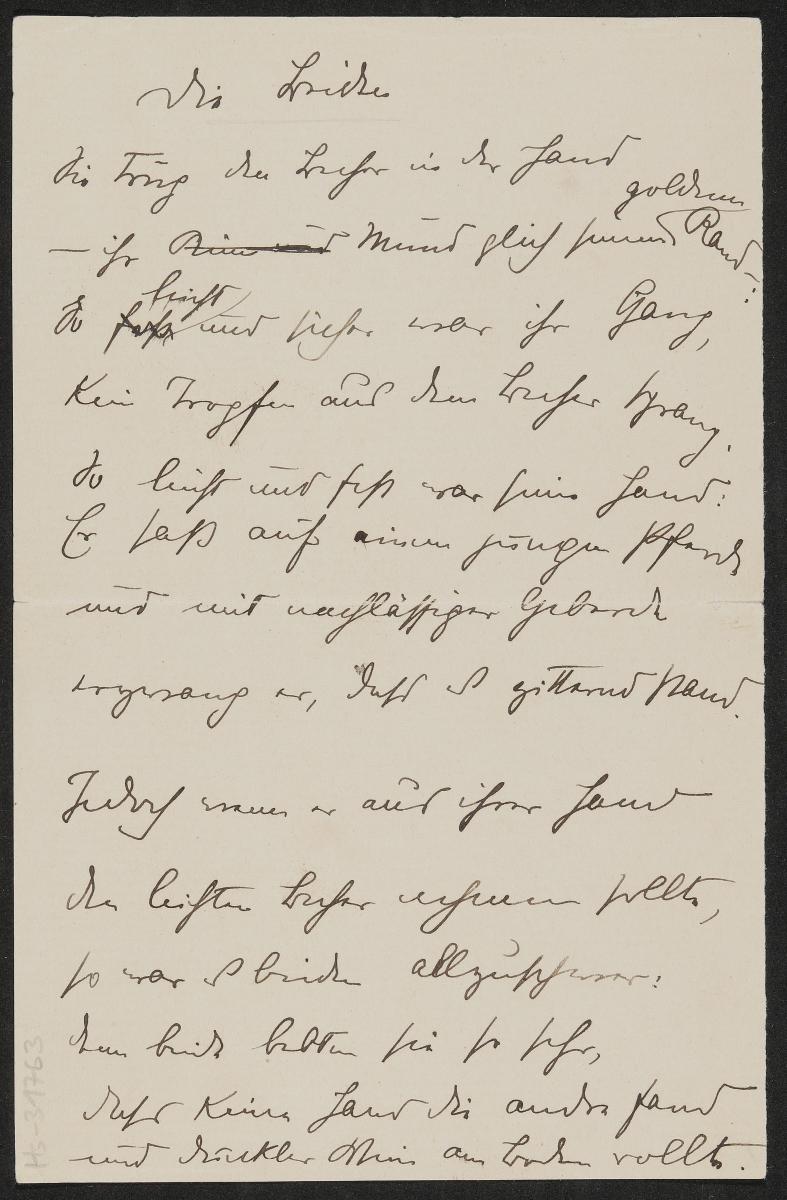 Die Beiden
Sie trug den Becher in der Hand
goldenem
— ihr Kinn und Mund glich seinem Rand —:
leicht
So fest und sicher war ihr Gang,
Kein Tropfen aus dem Becher sprang.
So leicht und fest war seine Hand:
Er saß auf einem jungen Pferde
und mit nachlässiger Geberde
erzwang er, dass es zitternd stand.
Jedoch wenn er aus ihrer Hand
den leichten Becher nehmen sollte,
so war es beiden allzuschwer:
denn beide bebten sie so sehr,
dass keine Hand die andre fand
und dunkler Wein am Boden rollte.
Hs-31763